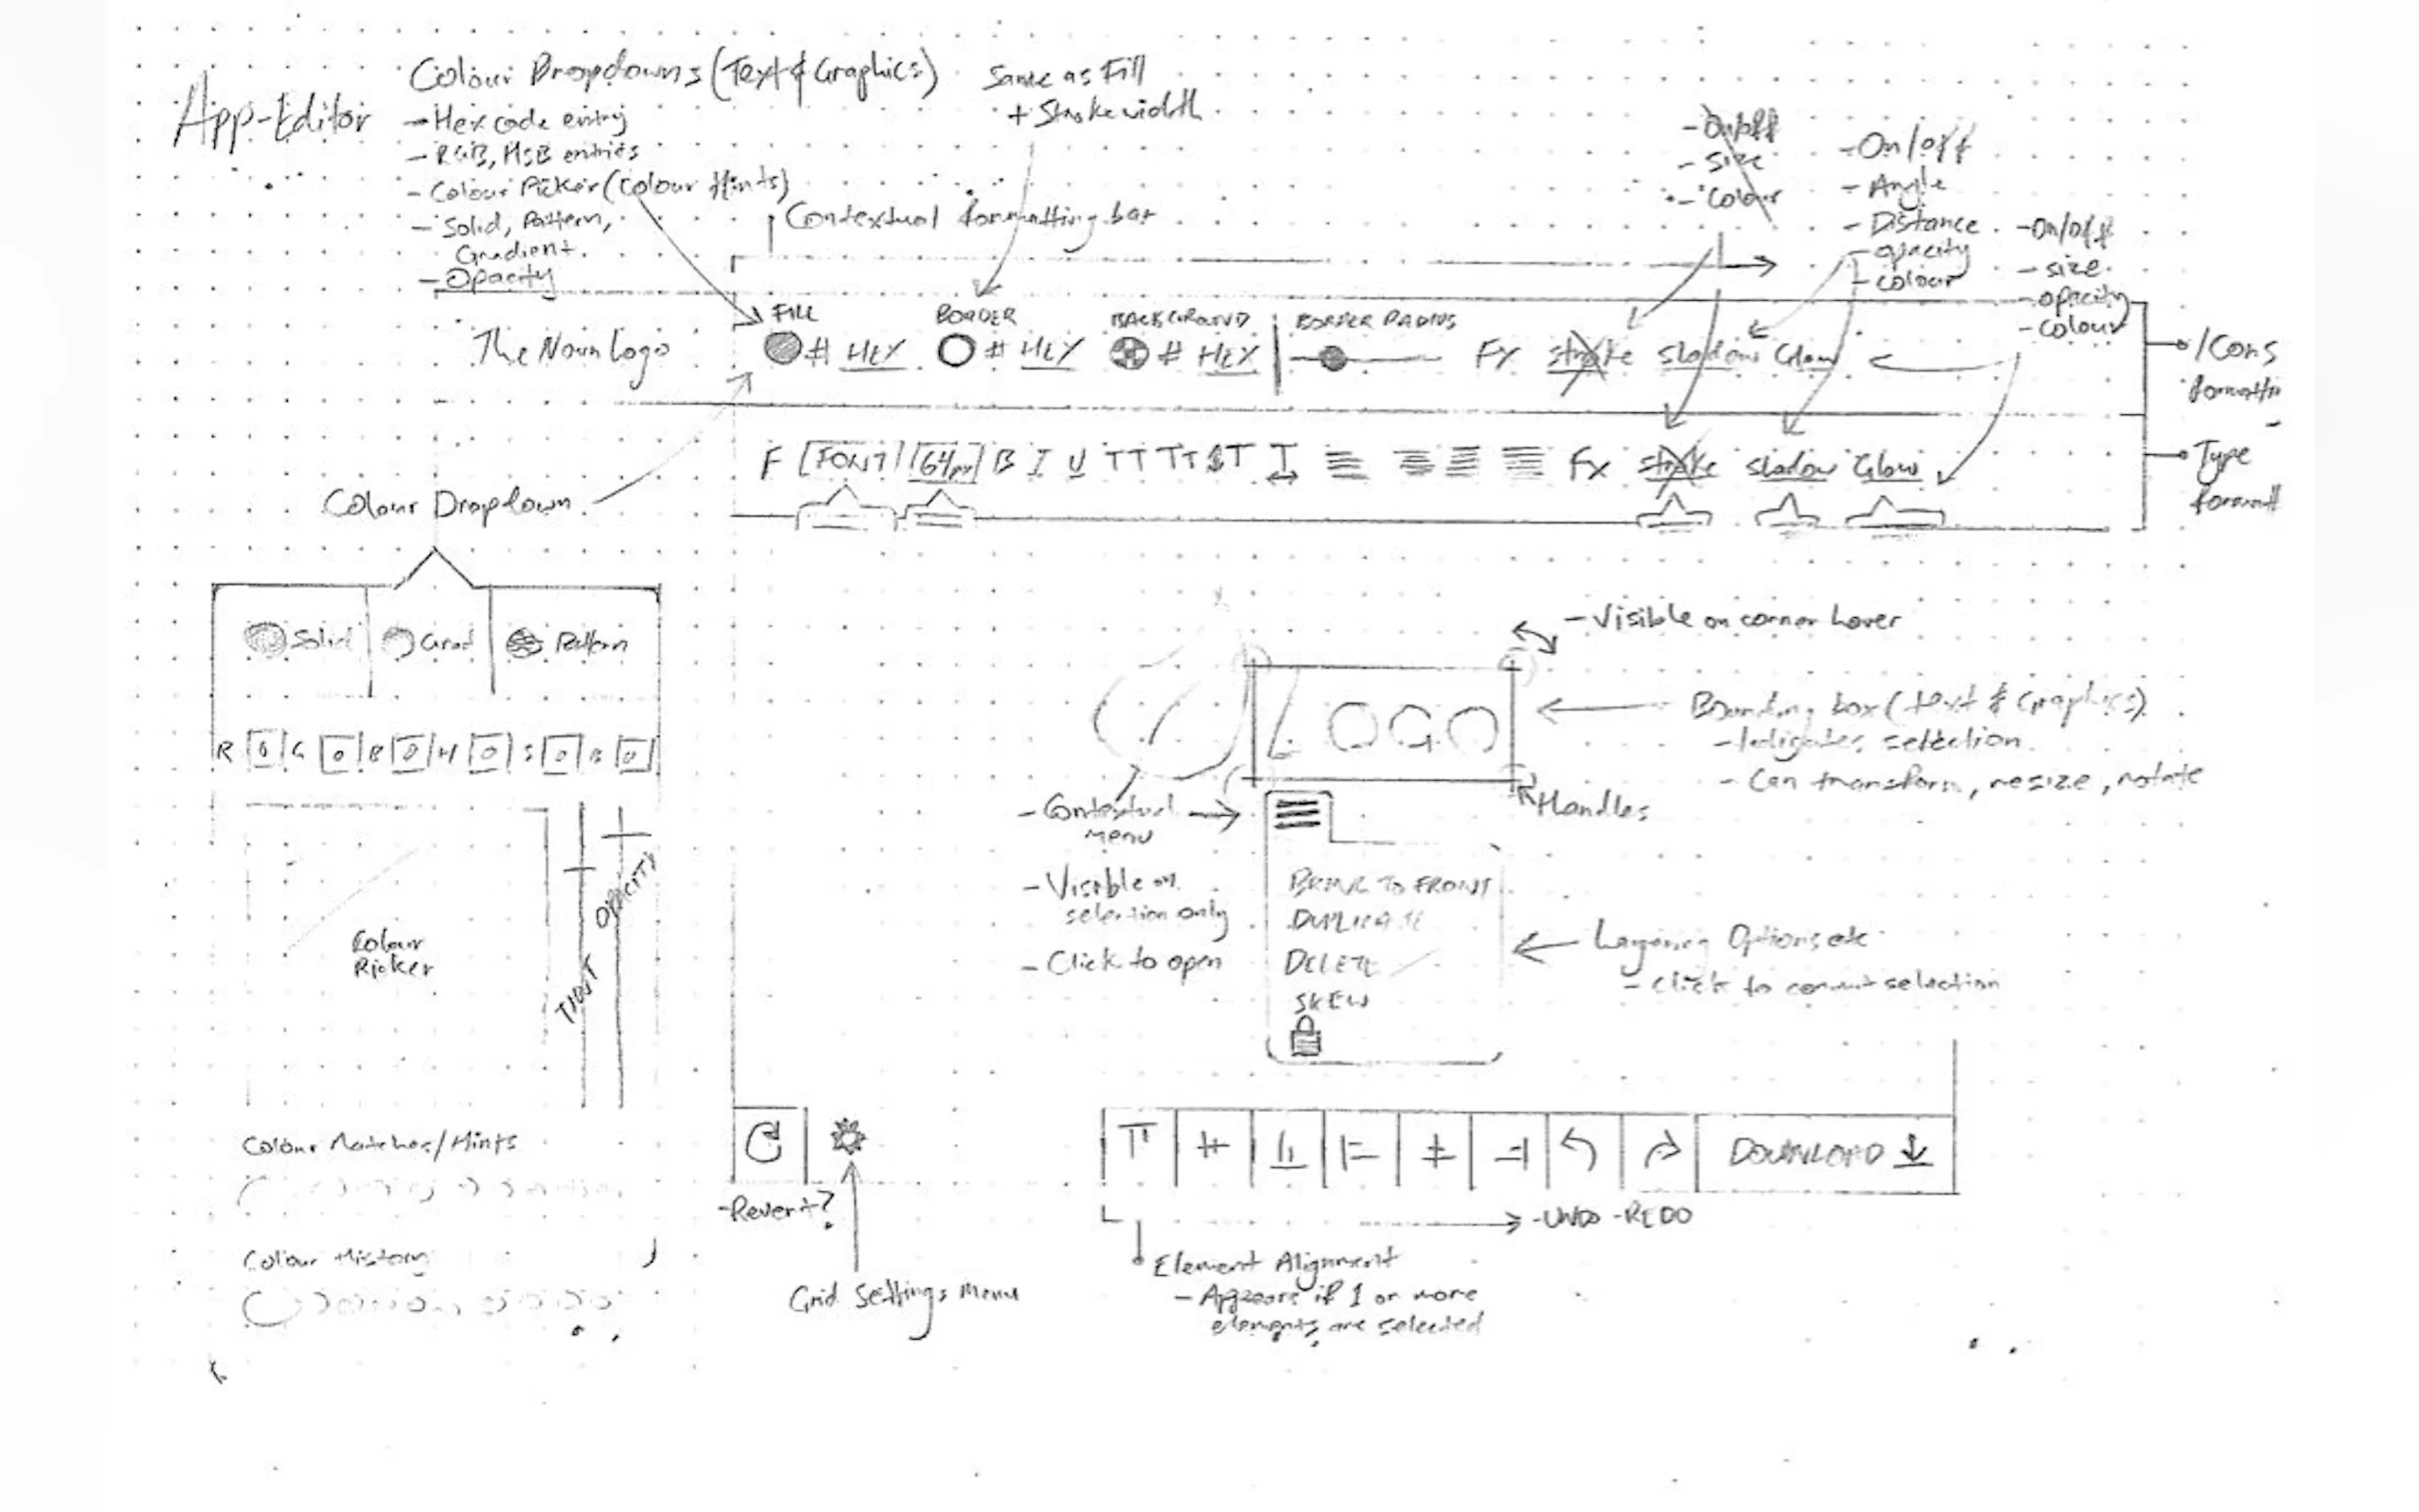 App-Editor
Colour Dropdowns (Text & Graphics)
- Hex code entry
- RGB, HSB entries
- Colour Picker (Colour Hints)
- Solid, Pattern,
Gradient
- Opacity
Same as Fill
+ Stroke width
Contextual formatting bar
- On/off
- Size
- Colour
- On/off
- Angle
- Distance
- opacity
- colour
- On/off
- size
- opacity
- colour
The Noun Logo
FILL
# HEX
BORDER
# HEX
BACKGROUND
# HEX
BORDER RADIUS
FX stroke shadow Glow
Icons
formatti
F [FONT] [64px] B I U TT Tt T I
FX stroke shadow Glow
Type
formatt
Colour Dropdown
Solid Grad Pattern
R 0 G 0 B 0 H 0 S 0 B 0
Colour
Picker
TINT
OPACITY
Colour Matches/Hints
Colour History
- Visible on corner hover
LOGO
Bounding box (text & Graphics)
- Indicates selection
- Can transform, resize, rotate
Handles
- Contextual
menu
- Visible on
selection only
- Click to open
BRING TO FRONT
DUPLICATE
DELETE
SKEW
Layering Options etc
- Click to commit selection
- Revert?
Grid Settings Menu
DOWNLOAD
- UNDO - REDO
Element Alignment
- Appears if 1 or more
elements are selected